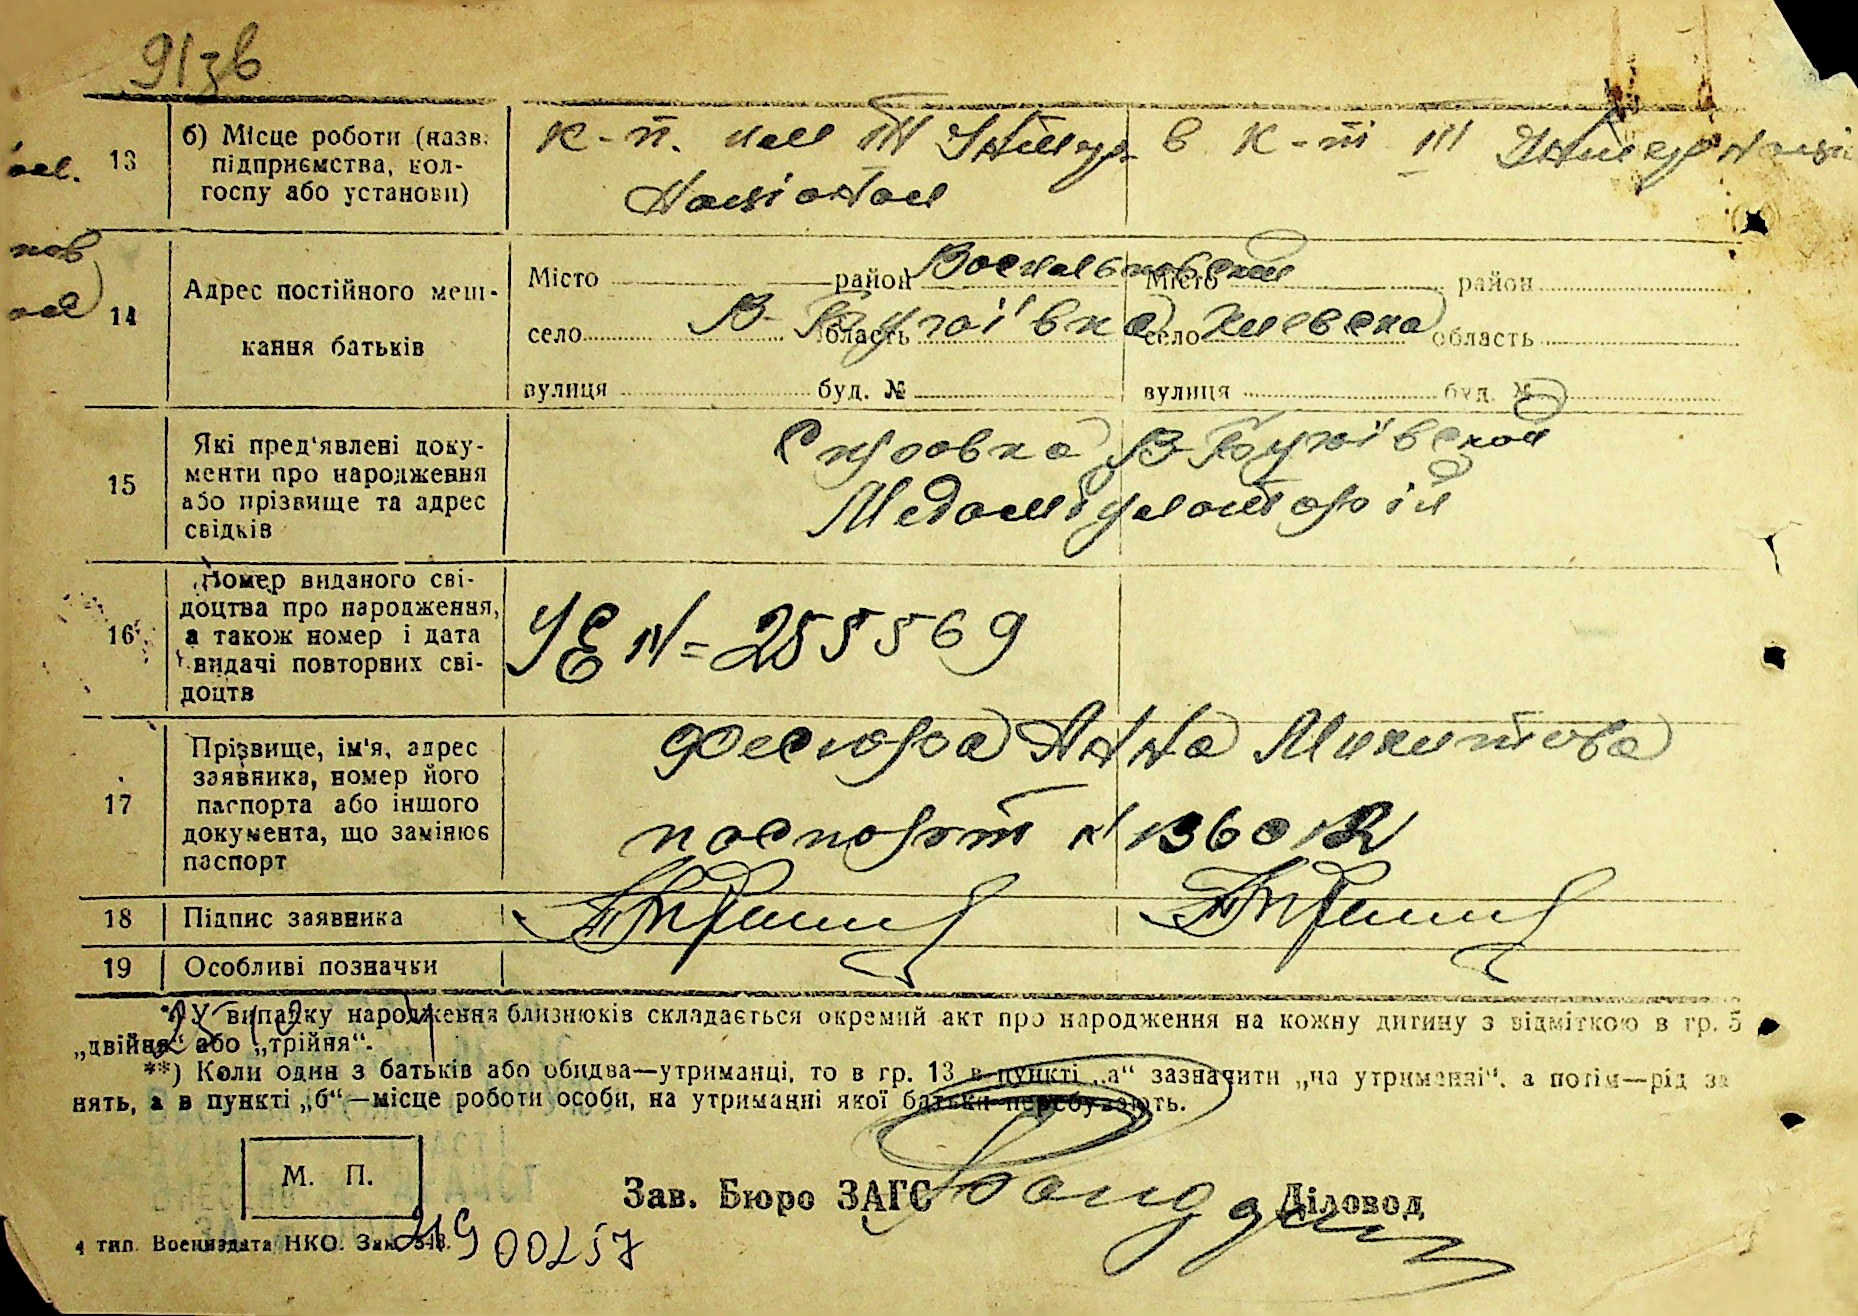 91зв
13
б) Місце роботи (назв.
підприємства, кол-
госпу або установи)
к-п. им III Интер
Націонал
в к-пі III Интернаці
14
Адрес постійного меш-
кання батьків
Місто район Васильковский Місто район
село В-Бугаївка область село Киевска область
вулиця буд. № вулиця буд. №
15
Які пред'явлені доку-
менти про народження
або прізвище та адрес
свідків
Справка В-Бугаївской
Медамбулаторій
16
Номер виданого сві-
доцтва про народження,
а також номер і дата
видачі повторних сві-
доцтв
УЕ N=255569
17
Прізвище, ім'я, адрес
заявника, номер його
паспорта або іншого
документа, що замінює
паспорт
Анна Микитовна
паспорт N
18 Підпис заявника
19 Особливі позначки
*) У випадку народження близнюків складається окремий акт про народження на кожну дитину з відміткою в гр. 5
„двійня“ або „трійня“.
**) Коли один з батьків або обидва—утриманці, то в гр. 13 в пункті „а“ зазначити „на утриманні“, а потім—рід за
нять, а в пункті „б“—місце роботи особи, на утриманні якої батьки перебувають.
М. П.
Зав. Бюро ЗАГС Діловод
4 тип. Воениздата НКО. Зак. 548.
00257